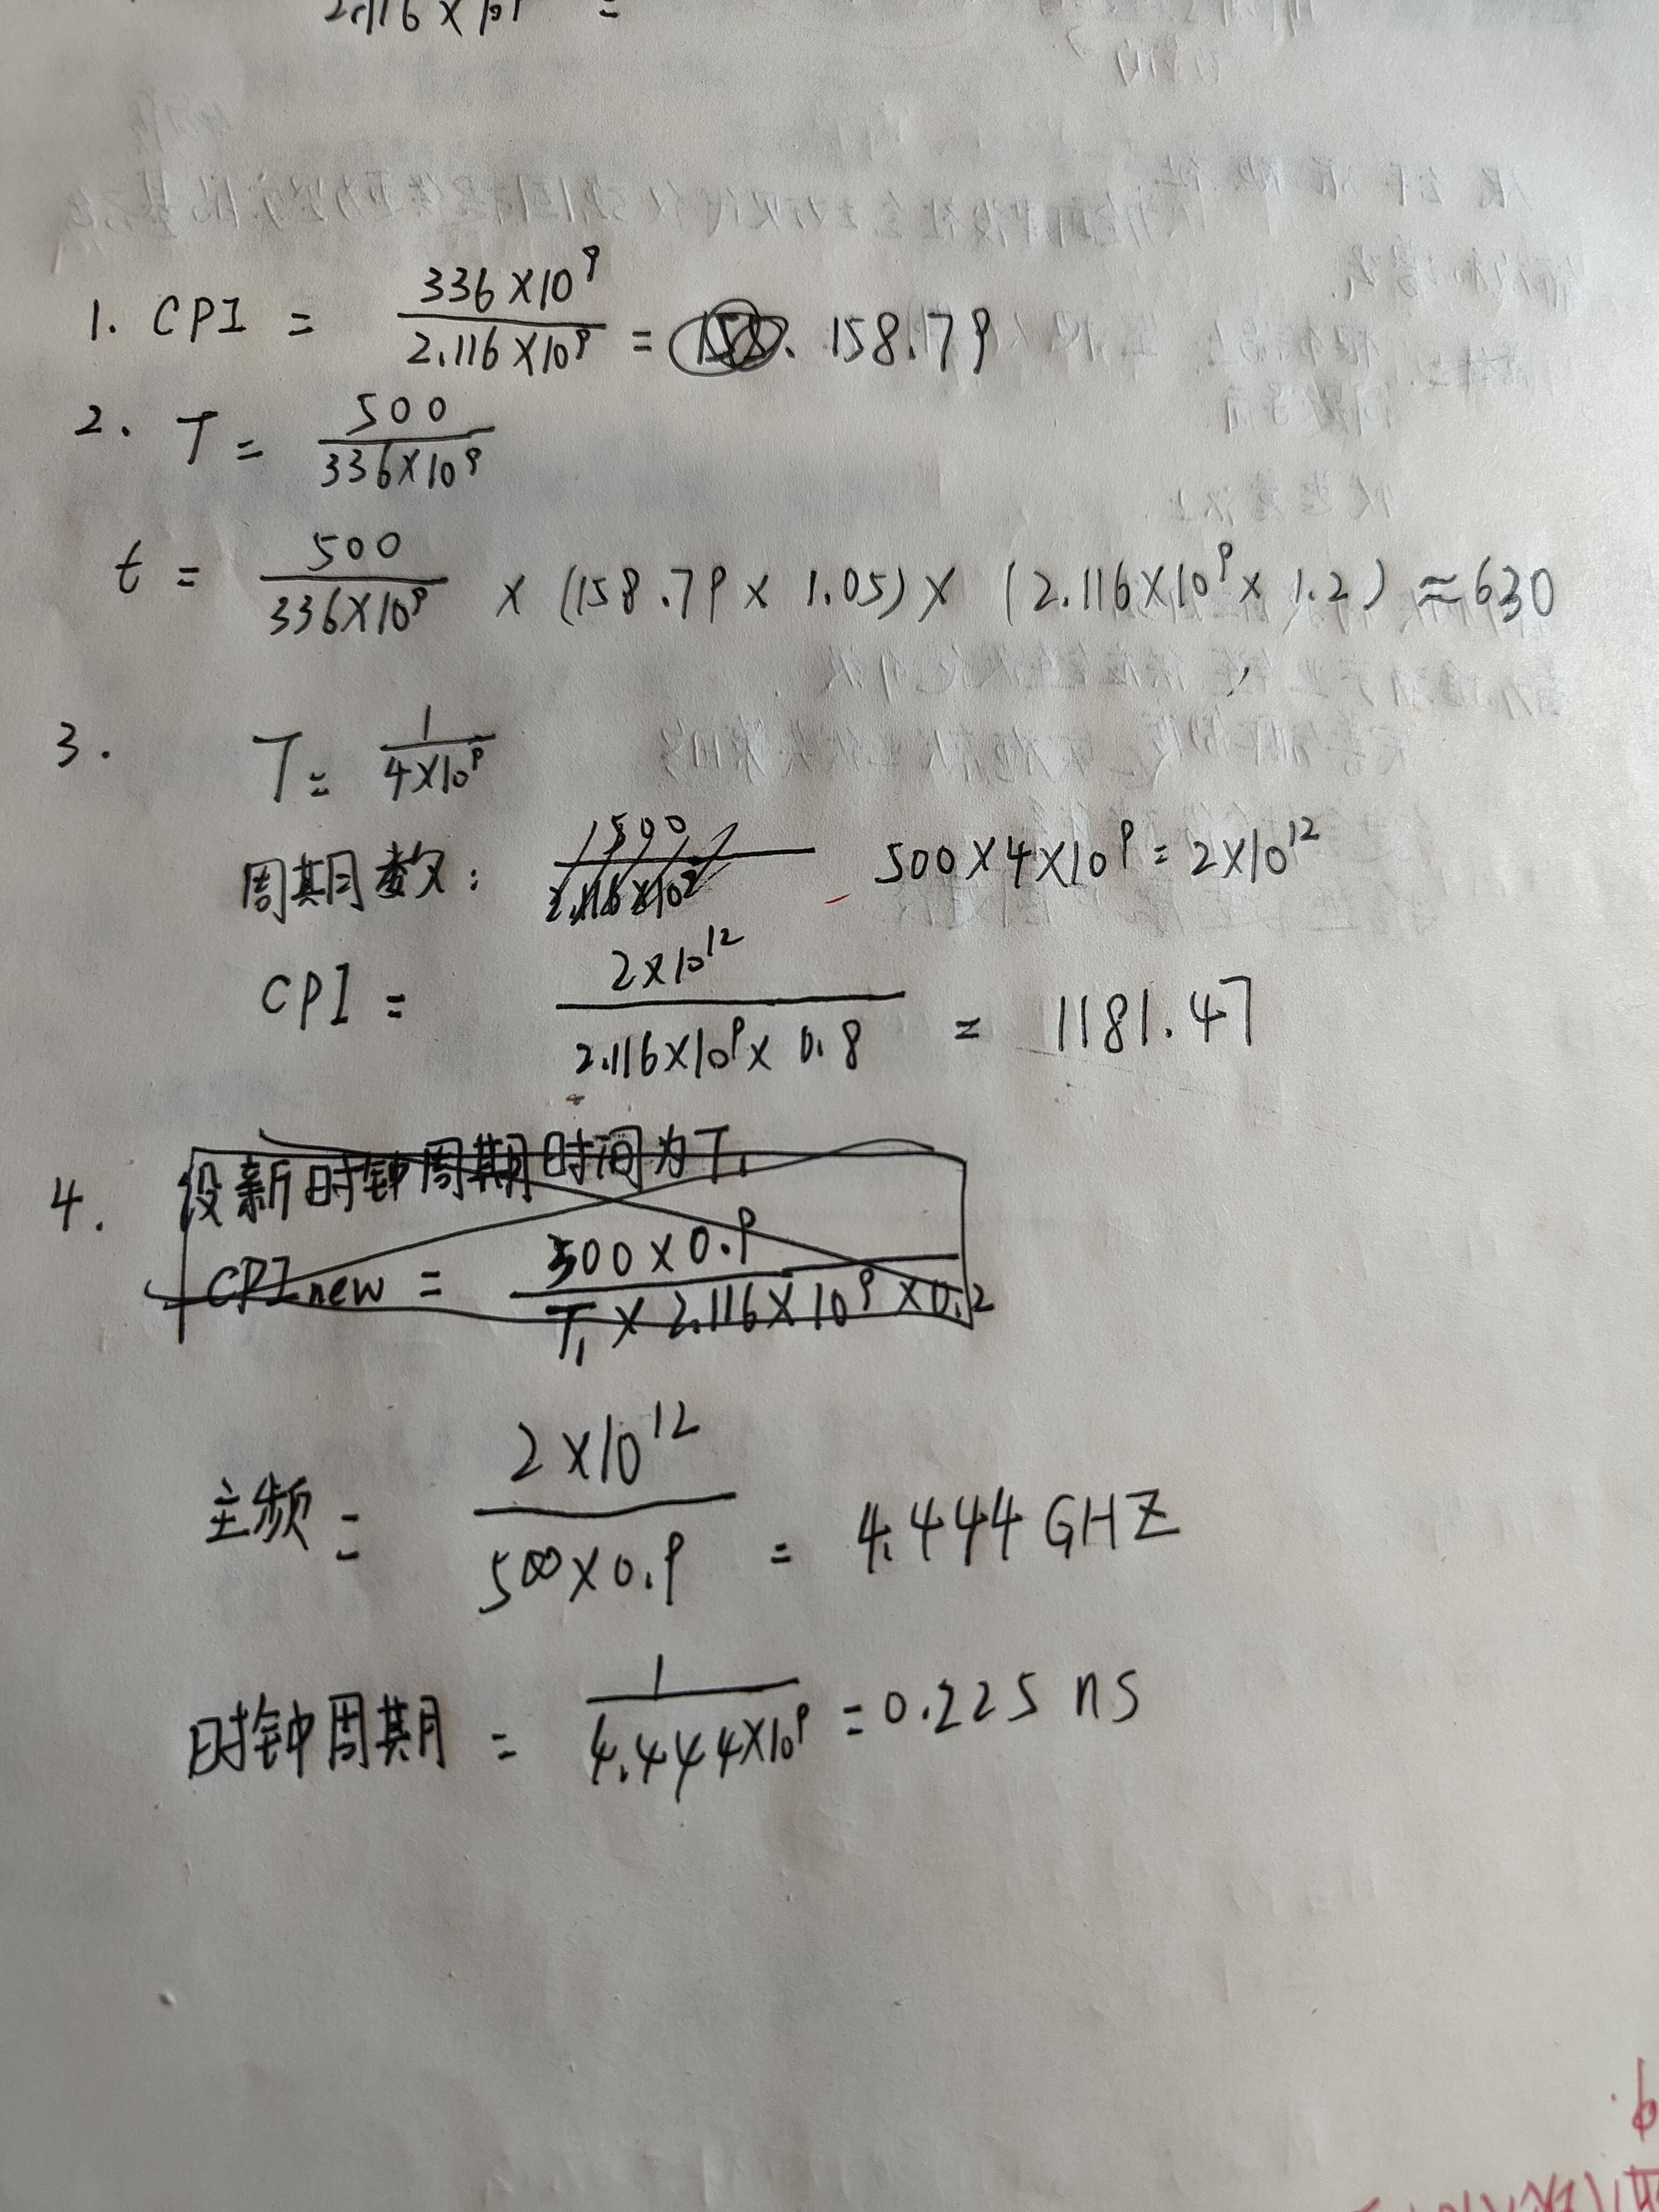 2.116×10⁹ =
1. CPI = 336×10⁹ / 2.116×10⁹ = 158.79
2. T = 500 / 336×10⁹
t = 500 / 336×10⁹ × (158.79×1.05)×(2.116×10⁹×1.2)≈630
3. T = 1 / 4×10⁹
周期数: 500×4×10⁹=2×10¹²
CPI = 2×10¹² / 2.116×10⁹×0.8 = 1181.47
4. 设新时钟周期时间为T₁
CPInew = 500×0.9 / T₁×2.116×10⁹×0.2
主频 = 2×10¹² / 500×0.9 = 4.444GHZ
时钟周期 = 1 / 4.444×10⁹ =0.225 ns